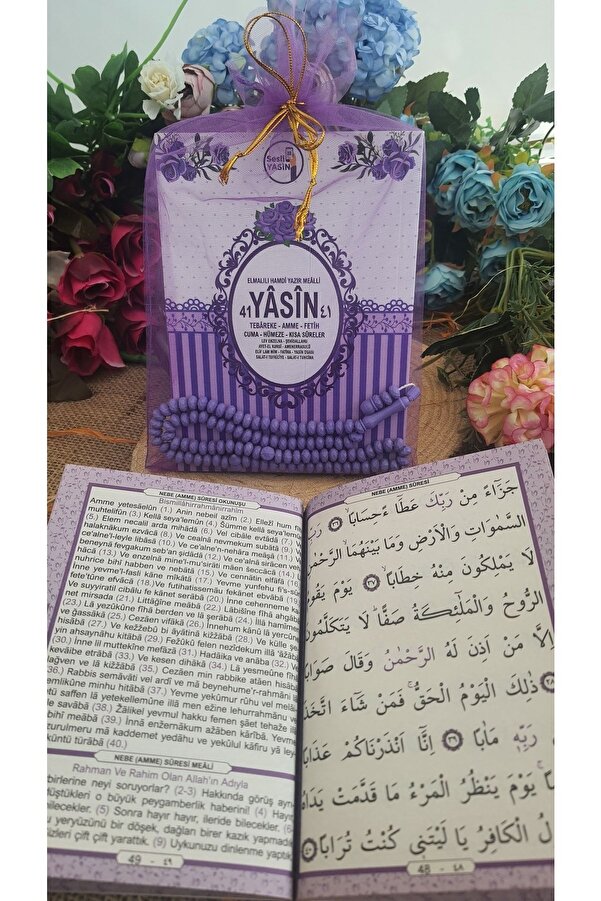 Sesli
YASİN
ELMALILI HAMDİ YAZIR MEÂLLİ
41 YÂSÎN ٤١
TEBÂREKE - AMME - FETİH
CUMA - HÜMEZE - KISA SÛRELER
AYET-EL KÜRSİ - AMENERRASULÜ
ELİF LAM MİM - FATİHA - YASİN DUASI
SALAT-I TEFRİCİYE - SALAT-I TUNCİNA
NEBE (AMME) SÛRESİ OKUNUŞU
Bismillâhirrahmânirrahîm
Amme yetesâelûn (1.) Anin nebeil azîm (2.) Ellezî hum fî
muhtelifûn (3.) Kellâ seya'lemûn (4.) Sümme kellâ seya'lemûn
(5.) Elem necalil arda mihâdâ (6.) Vel cibâle evtâdâ (7.) Ve
halaknâkum ezvâcâ (8.) Ve cealnâ nevmekum subâtâ (9.)
ce'alne'l-leyle libâsâ (10.) Ve ce'alne'n-nehâra meâşâ (11.)
beneynâ fevgakum seb'an şidâdâ (12.) Ve ce'alnâ sirâcen ve
hâcâ (13.) Ve enzelnâ mine'l-mu'sirâti mâen šeccâcâ (14.)
nuhrice bihî habben ve nebâtâ (15.) Ve cennâtin elfâfâ (16.)
İnne yevme'l-fasli kâne mîkâtâ (17.) Yevme yunfehu fi's-sû
fete'tûne efvâcâ (18.) Ve futihatissemâu fekânet ebvâbâ (19.)
Ve suyyiratil cibâlu fe kânet serâbâ (20.) İnne cehenneme kâ
net mirsada (21.) Littâgîne meâbâ (22.) Lâbišîne fîhâ ahgâbâ
(23.) Lâ yezûkûne fîhâ berden ve lâ şerâbâ (24.) İllâ hamîmen
ve ğassâkâ (25.) Cezâen vifâkâ (26.) İnnehum kânû lâ yercûne
hisâbâ (27.) Ve kežžebû bi âyâtinâ kižžâbâ (28.) Ve külle şe
yin ahsaynâhu kitâbâ (29.) Fežûkû felen nezîdekum illâ 'âžâbâ
(30.) İnne lil muttekîne mefâzâ (31.) Hadâika ve anâba (32.) Ve
kevâibe etrâbâ (33.) Ve kesen dihâkâ (34.) Lâ yesmeûne fîhâ
lağven ve lâ kižžâbâ (35.) Cezâen min rabbike atâen hisâbâ
(36.) Rabbis semâvâti vel ardi ve mâ beynehume'r-rahmâni
emlikûne minhu hitâbâ (37.) Yevme yekûmur rûhu vel melâi
etu saffen lâ yetekellemûne illâ men ežine lehurrahmânu ve
le savâbâ (38.) Žâlikel yevmul hakku femen şâet tehaže ilâ
bihî meâbâ (39.) İnnâ enžernâkum ažâben karîbâ. Yevme
nzurulmeru mâ kaddemet yedâhu ve yekûlul kâfiru yâ ley
küntü türâbâ (40.)
NEBE (AMME) SÛRESİ MEÂLİ
Rahman Ve Rahim Olan Allah'ın Adıyla
birlerine neyi soruyorlar? (2-3) Hakkında görüş ayrı
düştükleri o büyük peygamberlik haberini! (4) Hayır
bilecekler. (5) Sonra hayır hayır, ileride bilecekler. (6
u yeryüzünü bir döşek, dağları birer kazık yapmadık
sizleri çift çift yarattık. (9) Uykunuzu dinlenme yaptık
49 - ٤٩
NEBE (AMME) SÛRESİ
جَزَاءً مِنْ رَبِّكَ عَطَاءً حِسَابًا ﴿٣٦﴾ رَبِّ
السَّمٰوَاتِ وَالْاَرْضِ وَمَا بَيْنَهُمَا الرَّحْمٰنِ
لَا يَمْلِكُونَ مِنْهُ خِطَابًا ﴿٣٧﴾ يَوْمَ يَقُومُ
الرُّوحُ وَالْمَلٰئِكَةُ صَفًّا لَا يَتَكَلَّمُونَ
اِلَّا مَنْ اَذِنَ لَهُ الرَّحْمٰنُ وَقَالَ صَوَابًا
﴿٣٨﴾ ذٰلِكَ الْيَوْمُ الْحَقُّ فَمَنْ شَاءَ اتَّخَذَ
رَبِّهِ مَاٰبًا ﴿٣٩﴾ اِنَّا اَنْذَرْنَاكُمْ عَذَابًا
يَوْمَ يَنْظُرُ الْمَرْءُ مَا قَدَّمَتْ يَدَاهُ
لُ الْكَافِرُ يَا لَيْتَنِي كُنْتُ تُرَابًا ﴿٤٠﴾
48 - ٤٨